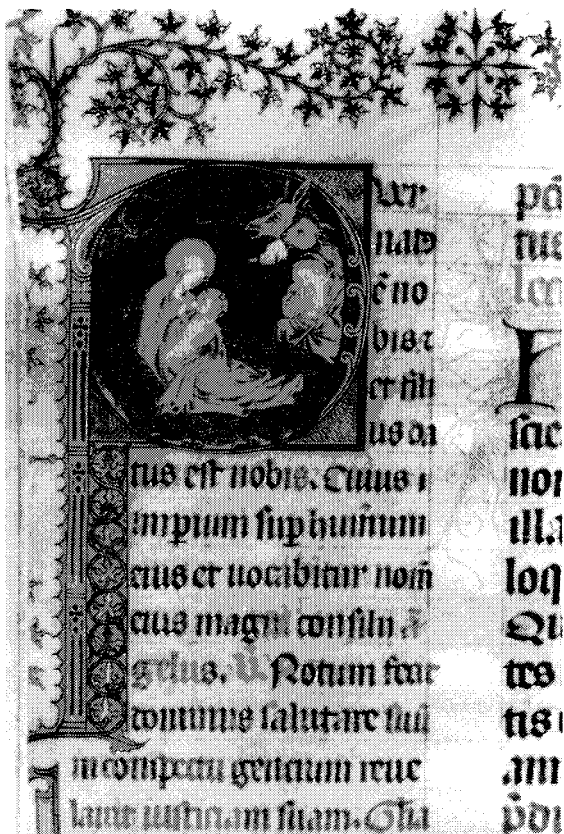 uer
nat
ē no
bis
et fili
us da
tus est nobis. Cuius i
mpium sup humum
eius et uocabitur nom̄
eius magni consilii ā
gelus. V. Notum fecit
dominus salutare suū
in conspectu gencium reue
lauit iusticiam suam. Glia
tus
scie
nor
ill.
loq
Qu
tes
tis
am